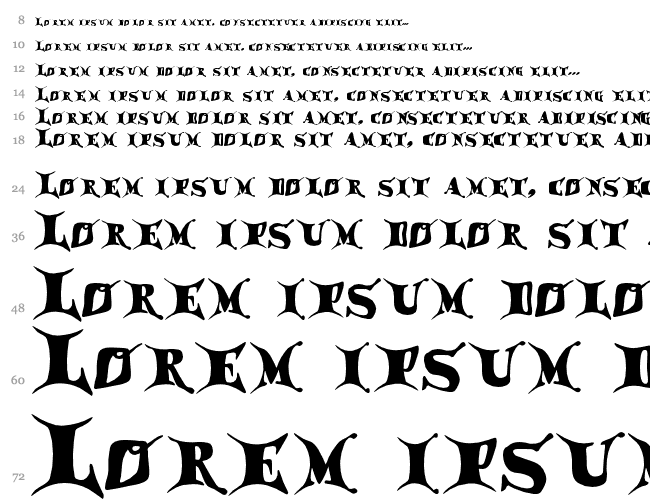 8 Lorem ipsum dolor sit amet, consectetuer adipiscing elit...
10 Lorem ipsum dolor sit amet, consectetuer adipiscing elit...
12 Lorem ipsum dolor sit amet, consectetuer adipiscing elit...
14 Lorem ipsum dolor sit amet, consectetuer adipiscing elit
16 Lorem ipsum dolor sit amet, consectetuer adipiscing
18 Lorem ipsum dolor sit amet, consectetuer adi
24 Lorem ipsum dolor sit amet, consec
36 Lorem ipsum dolor sit
48 Lorem ipsum dolo
60 Lorem ipsum d
72 Lorem ipsum